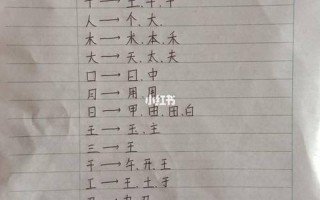 人→个、大
木→术、本、禾
大→天、太、夫
口→日、中
月→用、甩
日→甲、田、团、白
小红书
王→玉、主
三→王
干→午、开、王
工→王、土、于